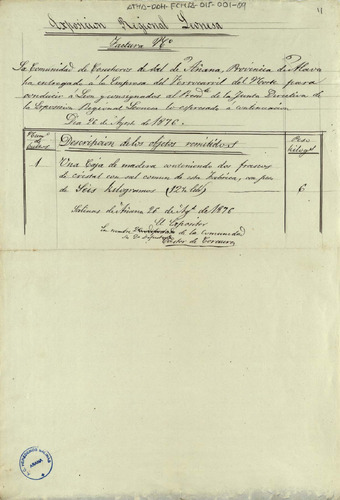 ATHA-DAH-FCHA-015-001-09
11
Exposicion Regional Leonesa
Factura Nº
La Comunidad de Caballeros de Sal de Añana, Provincia de Alava
ha entregado á la Empresa del Ferrocarril del Norte para
conducir á Leon y consignados al Presd.te de la Junta Directiva de
la Exposicion Regional Leonesa lo expresado á continuacion.
Dia 26 de Agosto de 1876.
de bultos
Descripcion de los objetos remitidos
Peso kilogs
1
Una Caja de madera conteniendo dos frascos
de cristal con sal comun de esta fabrica, con peso
de Seis kilogramos
6
Salinas de Añana 26 de Agto de 1876
El Expositor
En nombre de la Comunidad